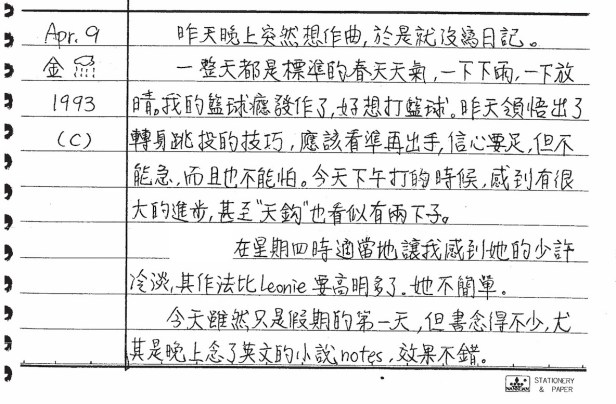 Apr. 9 昨天晚上突然想作曲,於是就沒寫日記。
金 一整天都是標準的春天天氣,一下下雨,一下放
1993 晴。我的籃球癮發作了,好想打籃球。昨天領悟出了
(C) 轉身跳投的技巧,應該看準再出手,信心要足,但不
能急,而且也不能怕。今天下午打的時候,感到有很
大的進步,甚至"天鈎"也看似有兩下子。
在星期四時適當地讓我感到她的少許
冷淡,其作法比Leonie要高明多了。她不簡單。
今天雖然只是假期的第一天,但書念得不少,尤
其是晚上念了英文的小說notes,效果不錯。
STATIONERY
& PAPER